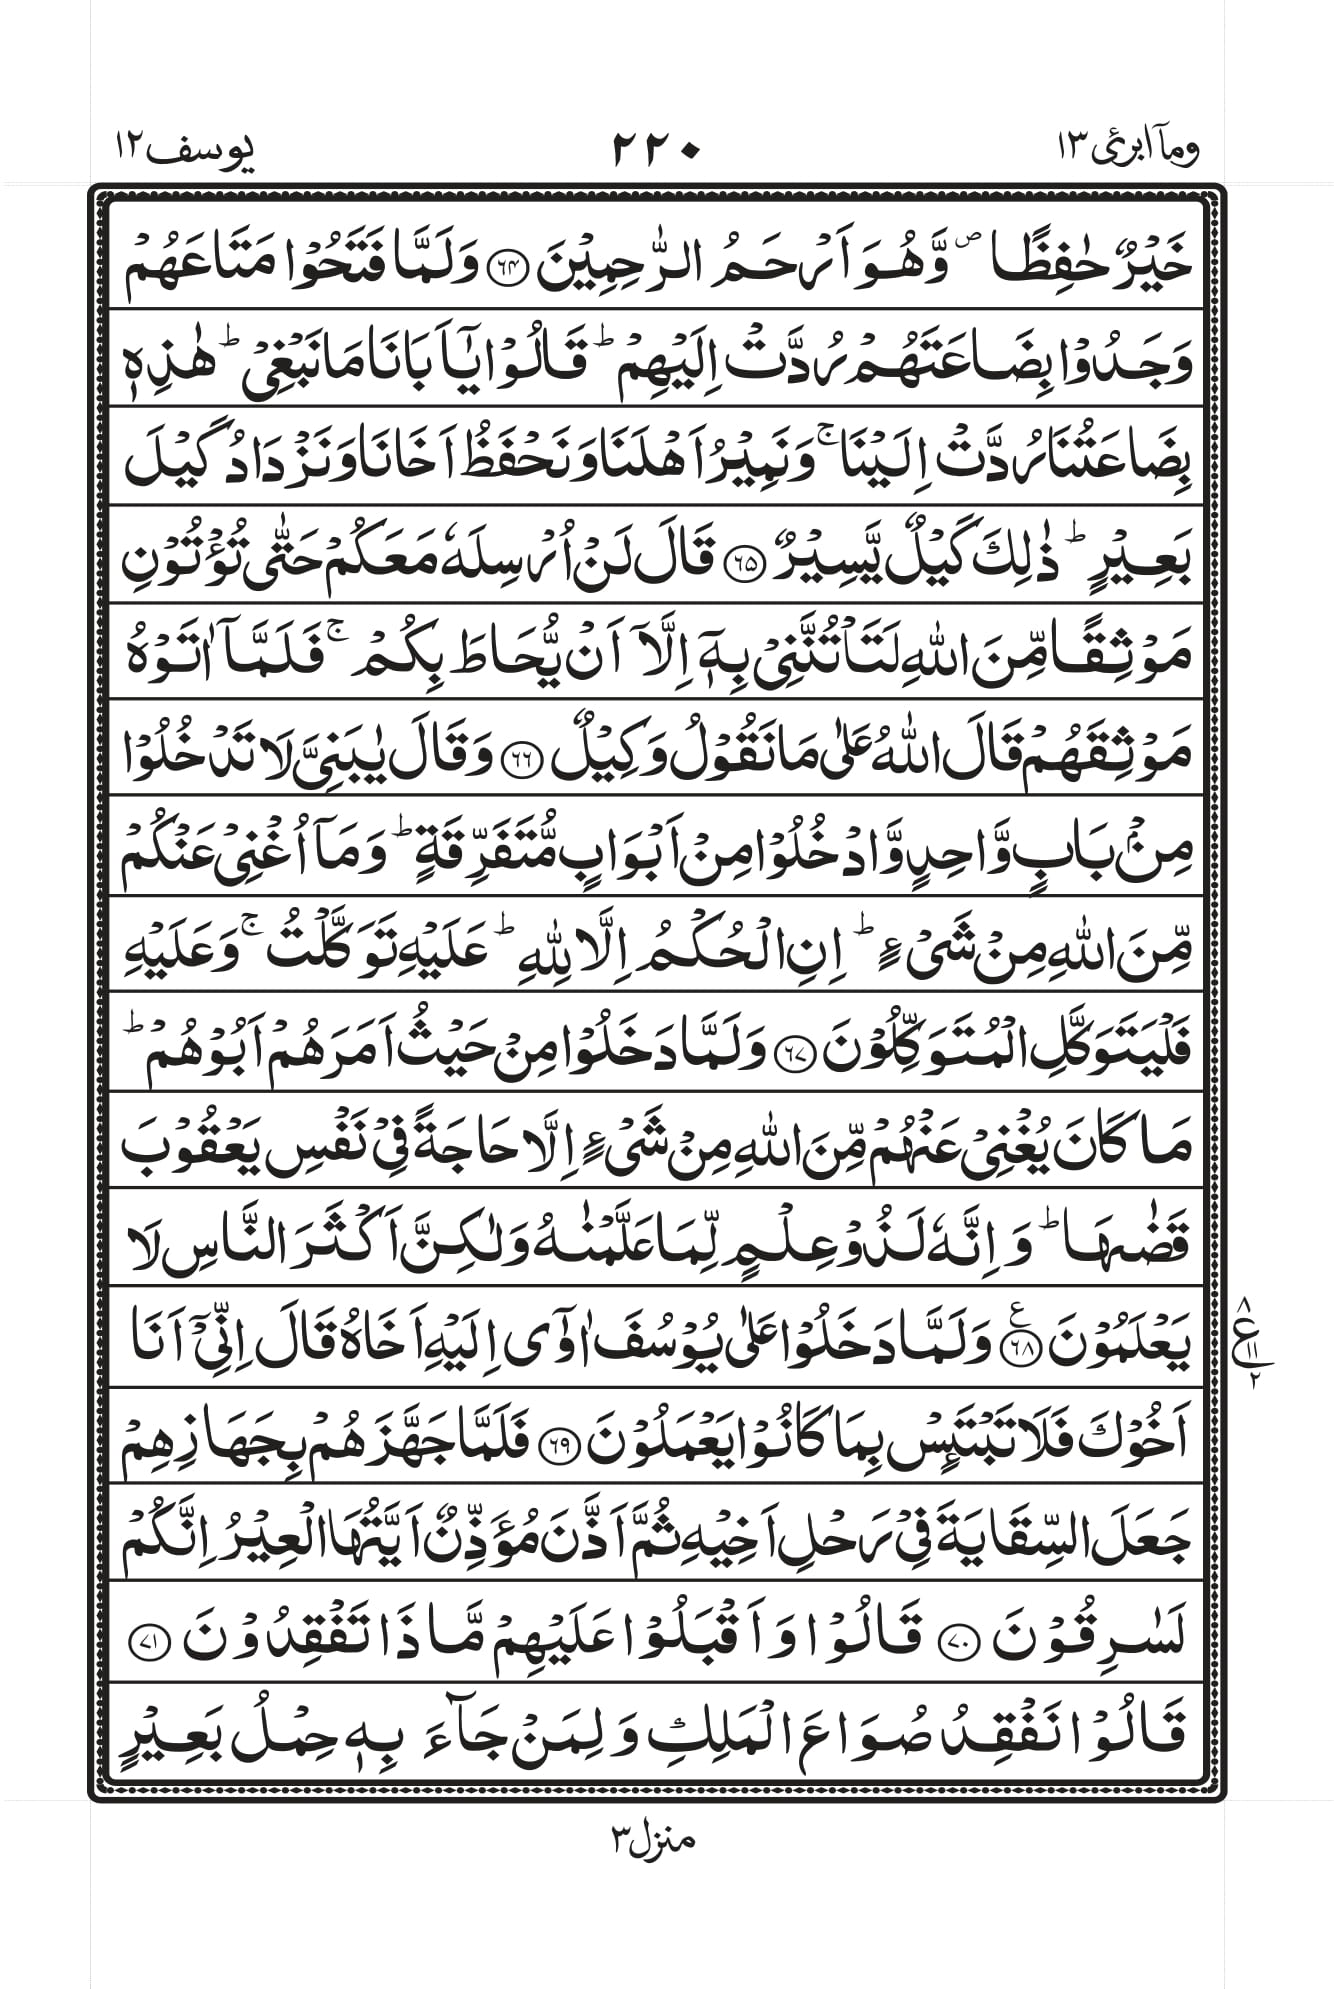 ومآ ابرئ ١٣
٢٢٠
يوسف ١٢
خَيْرٌ حٰفِظًا ۪ وَّهُوَ اَرْحَمُ الرّٰحِمِيْنَ ﴿۶۴﴾ وَلَمَّا فَتَحُوْا مَتَاعَهُمْ
وَجَدُوْا بِضَاعَتَهُمْ رُدَّتْ اِلَيْهِمْ ؕ قَالُوْا يٰۤاَبَانَا مَا نَبْغِىْ ؕ هٰذِهٖ
بِضَاعَتُنَا رُدَّتْ اِلَيْنَا ۚ وَنَمِيْرُ اَهْلَنَا وَنَحْفَظُ اَخَانَا وَنَزْدَادُ كَيْلَ
بَعِيْرٍ ؕ ذٰلِكَ كَيْلٌ يَّسِيْرٌ ﴿۶۵﴾ قَالَ لَنْ اُرْسِلَهٗ مَعَكُمْ حَتّٰى تُؤْتُوْنِ
مَوْثِقًا مِّنَ اللّٰهِ لَتَاْتُنَّنِىْ بِهٖۤ اِلَّاۤ اَنْ يُّحَاطَ بِكُمْ ۚ فَلَمَّاۤ اٰتَوْهُ
مَوْثِقَهُمْ قَالَ اللّٰهُ عَلٰى مَا نَقُوْلُ وَكِيْلٌ ﴿۶۶﴾ وَقَالَ يٰبَنِىَّ لَا تَدْخُلُوْا
مِنْۢ بَابٍ وَّاحِدٍ وَّادْخُلُوْا مِنْ اَبْوَابٍ مُّتَفَرِّقَةٍ ؕ وَمَاۤ اُغْنِىْ عَنْكُمْ
مِّنَ اللّٰهِ مِنْ شَىْءٍ ؕ اِنِ الْحُكْمُ اِلَّا لِلّٰهِ ؕ عَلَيْهِ تَوَكَّلْتُ ۚ وَعَلَيْهِ
فَلْيَتَوَكَّلِ الْمُتَوَكِّلُوْنَ ﴿۶۷﴾ وَلَمَّا دَخَلُوْا مِنْ حَيْثُ اَمَرَهُمْ اَبُوْهُمْ ؕ
مَا كَانَ يُغْنِىْ عَنْهُمْ مِّنَ اللّٰهِ مِنْ شَىْءٍ اِلَّا حَاجَةً فِىْ نَفْسِ يَعْقُوْبَ
قَضٰىهَا ؕ وَاِنَّهٗ لَذُوْ عِلْمٍ لِّمَا عَلَّمْنٰهُ وَلٰكِنَّ اَكْثَرَ النَّاسِ لَا
يَعْلَمُوْنَ ﴿۶۸﴾ ع وَلَمَّا دَخَلُوْا عَلٰى يُوْسُفَ اٰوٰۤى اِلَيْهِ اَخَاهُ قَالَ اِنِّىْۤ اَنَا
٨
ع ١١
٢
اَخُوْكَ فَلَا تَبْتَئِسْ بِمَا كَانُوْا يَعْمَلُوْنَ ﴿۶۹﴾ فَلَمَّا جَهَّزَهُمْ بِجَهَازِهِمْ
جَعَلَ السِّقَايَةَ فِىْ رَحْلِ اَخِيْهِ ثُمَّ اَذَّنَ مُؤَذِّنٌ اَيَّتُهَا الْعِيْرُ اِنَّكُمْ
لَسٰرِقُوْنَ ﴿۷۰﴾ قَالُوْا وَاَقْبَلُوْا عَلَيْهِمْ مَّاذَا تَفْقِدُوْنَ ﴿۷۱﴾
قَالُوْا نَفْقِدُ صُوَاعَ الْمَلِكِ وَلِمَنْ جَآءَ بِهٖ حِمْلُ بَعِيْرٍ
منزل ٣